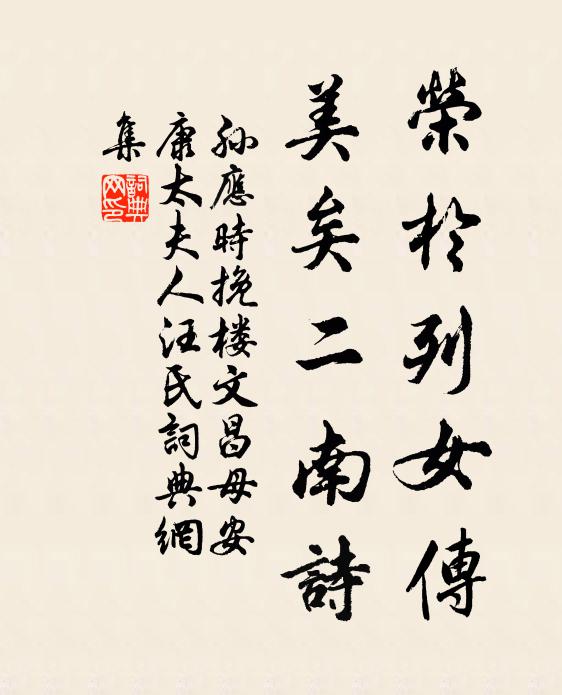 榮於列女傳
美矣二南詩
孙應時挽楼文昌母安
康太夫人汪氏詞典網
集
詞典
网印